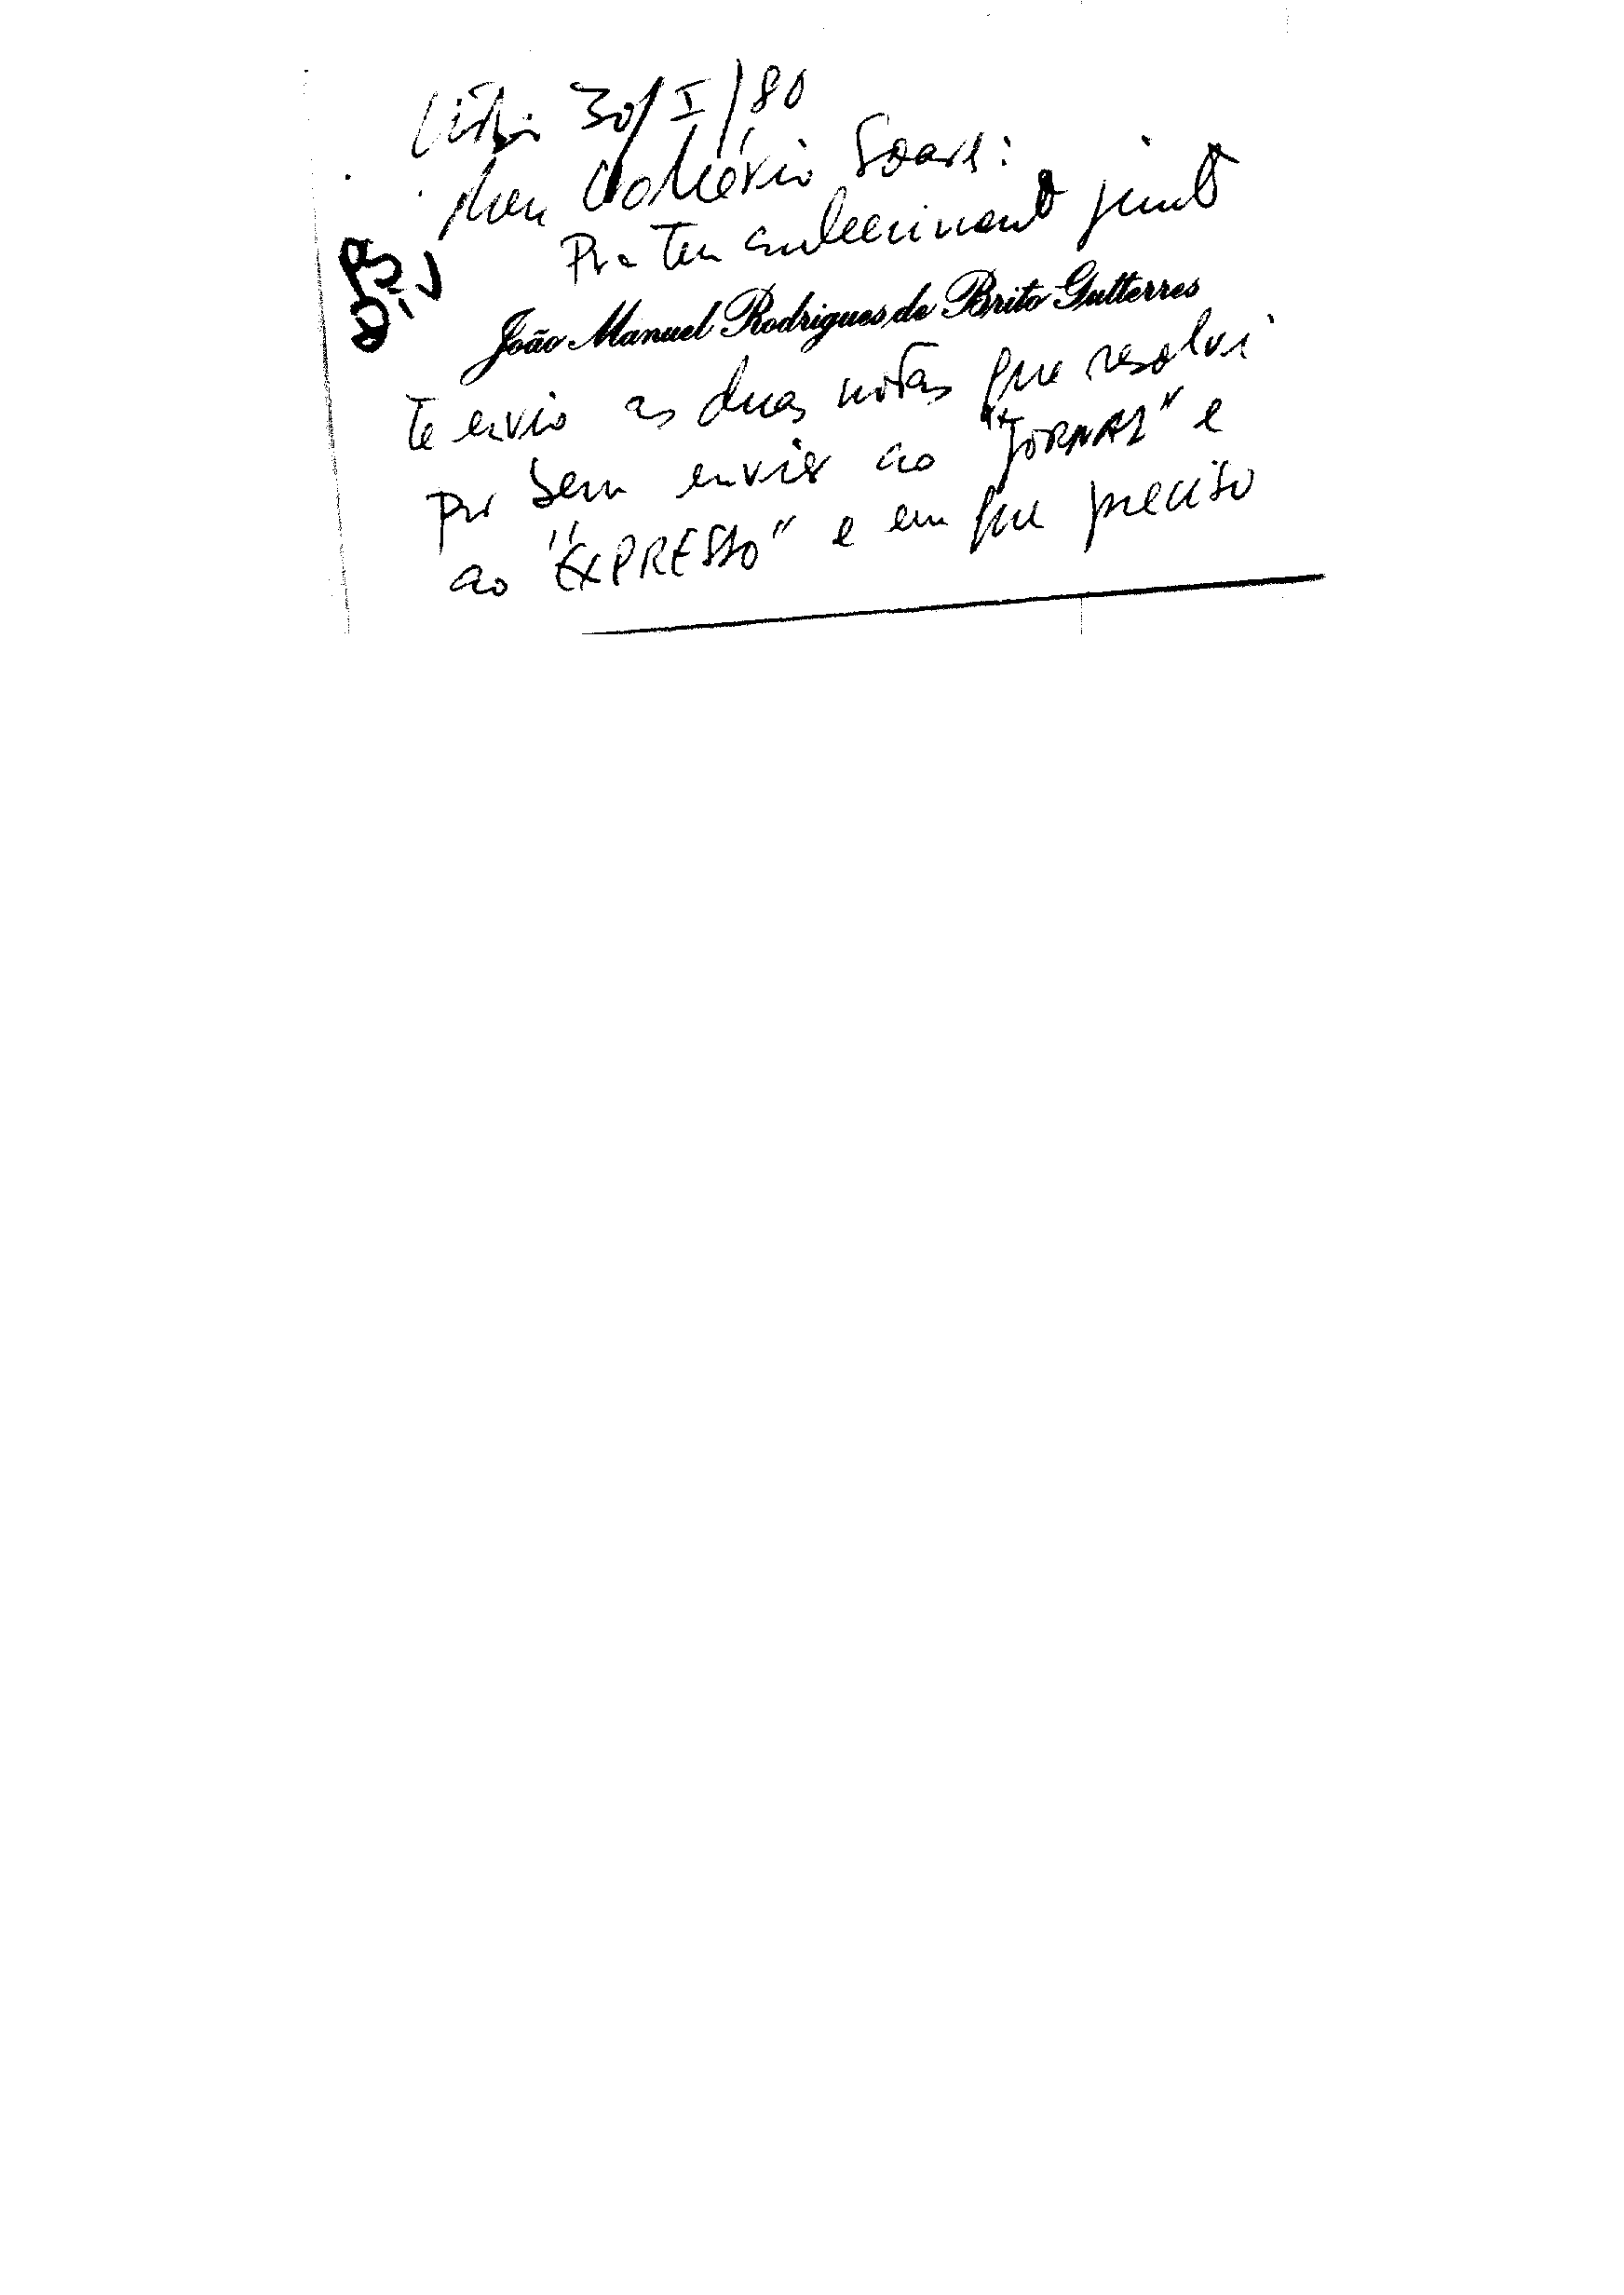 Lisboa 30/I/80
Meu caro Mário Soares:
PS
Div
Para teu conhecimento junto
João Manuel Rodrigues de Brito Gutterres
te envio as duas notas que resolvi
por bem enviar ao "JORNAL" e
ao "EXPRESSO" e em que preciso